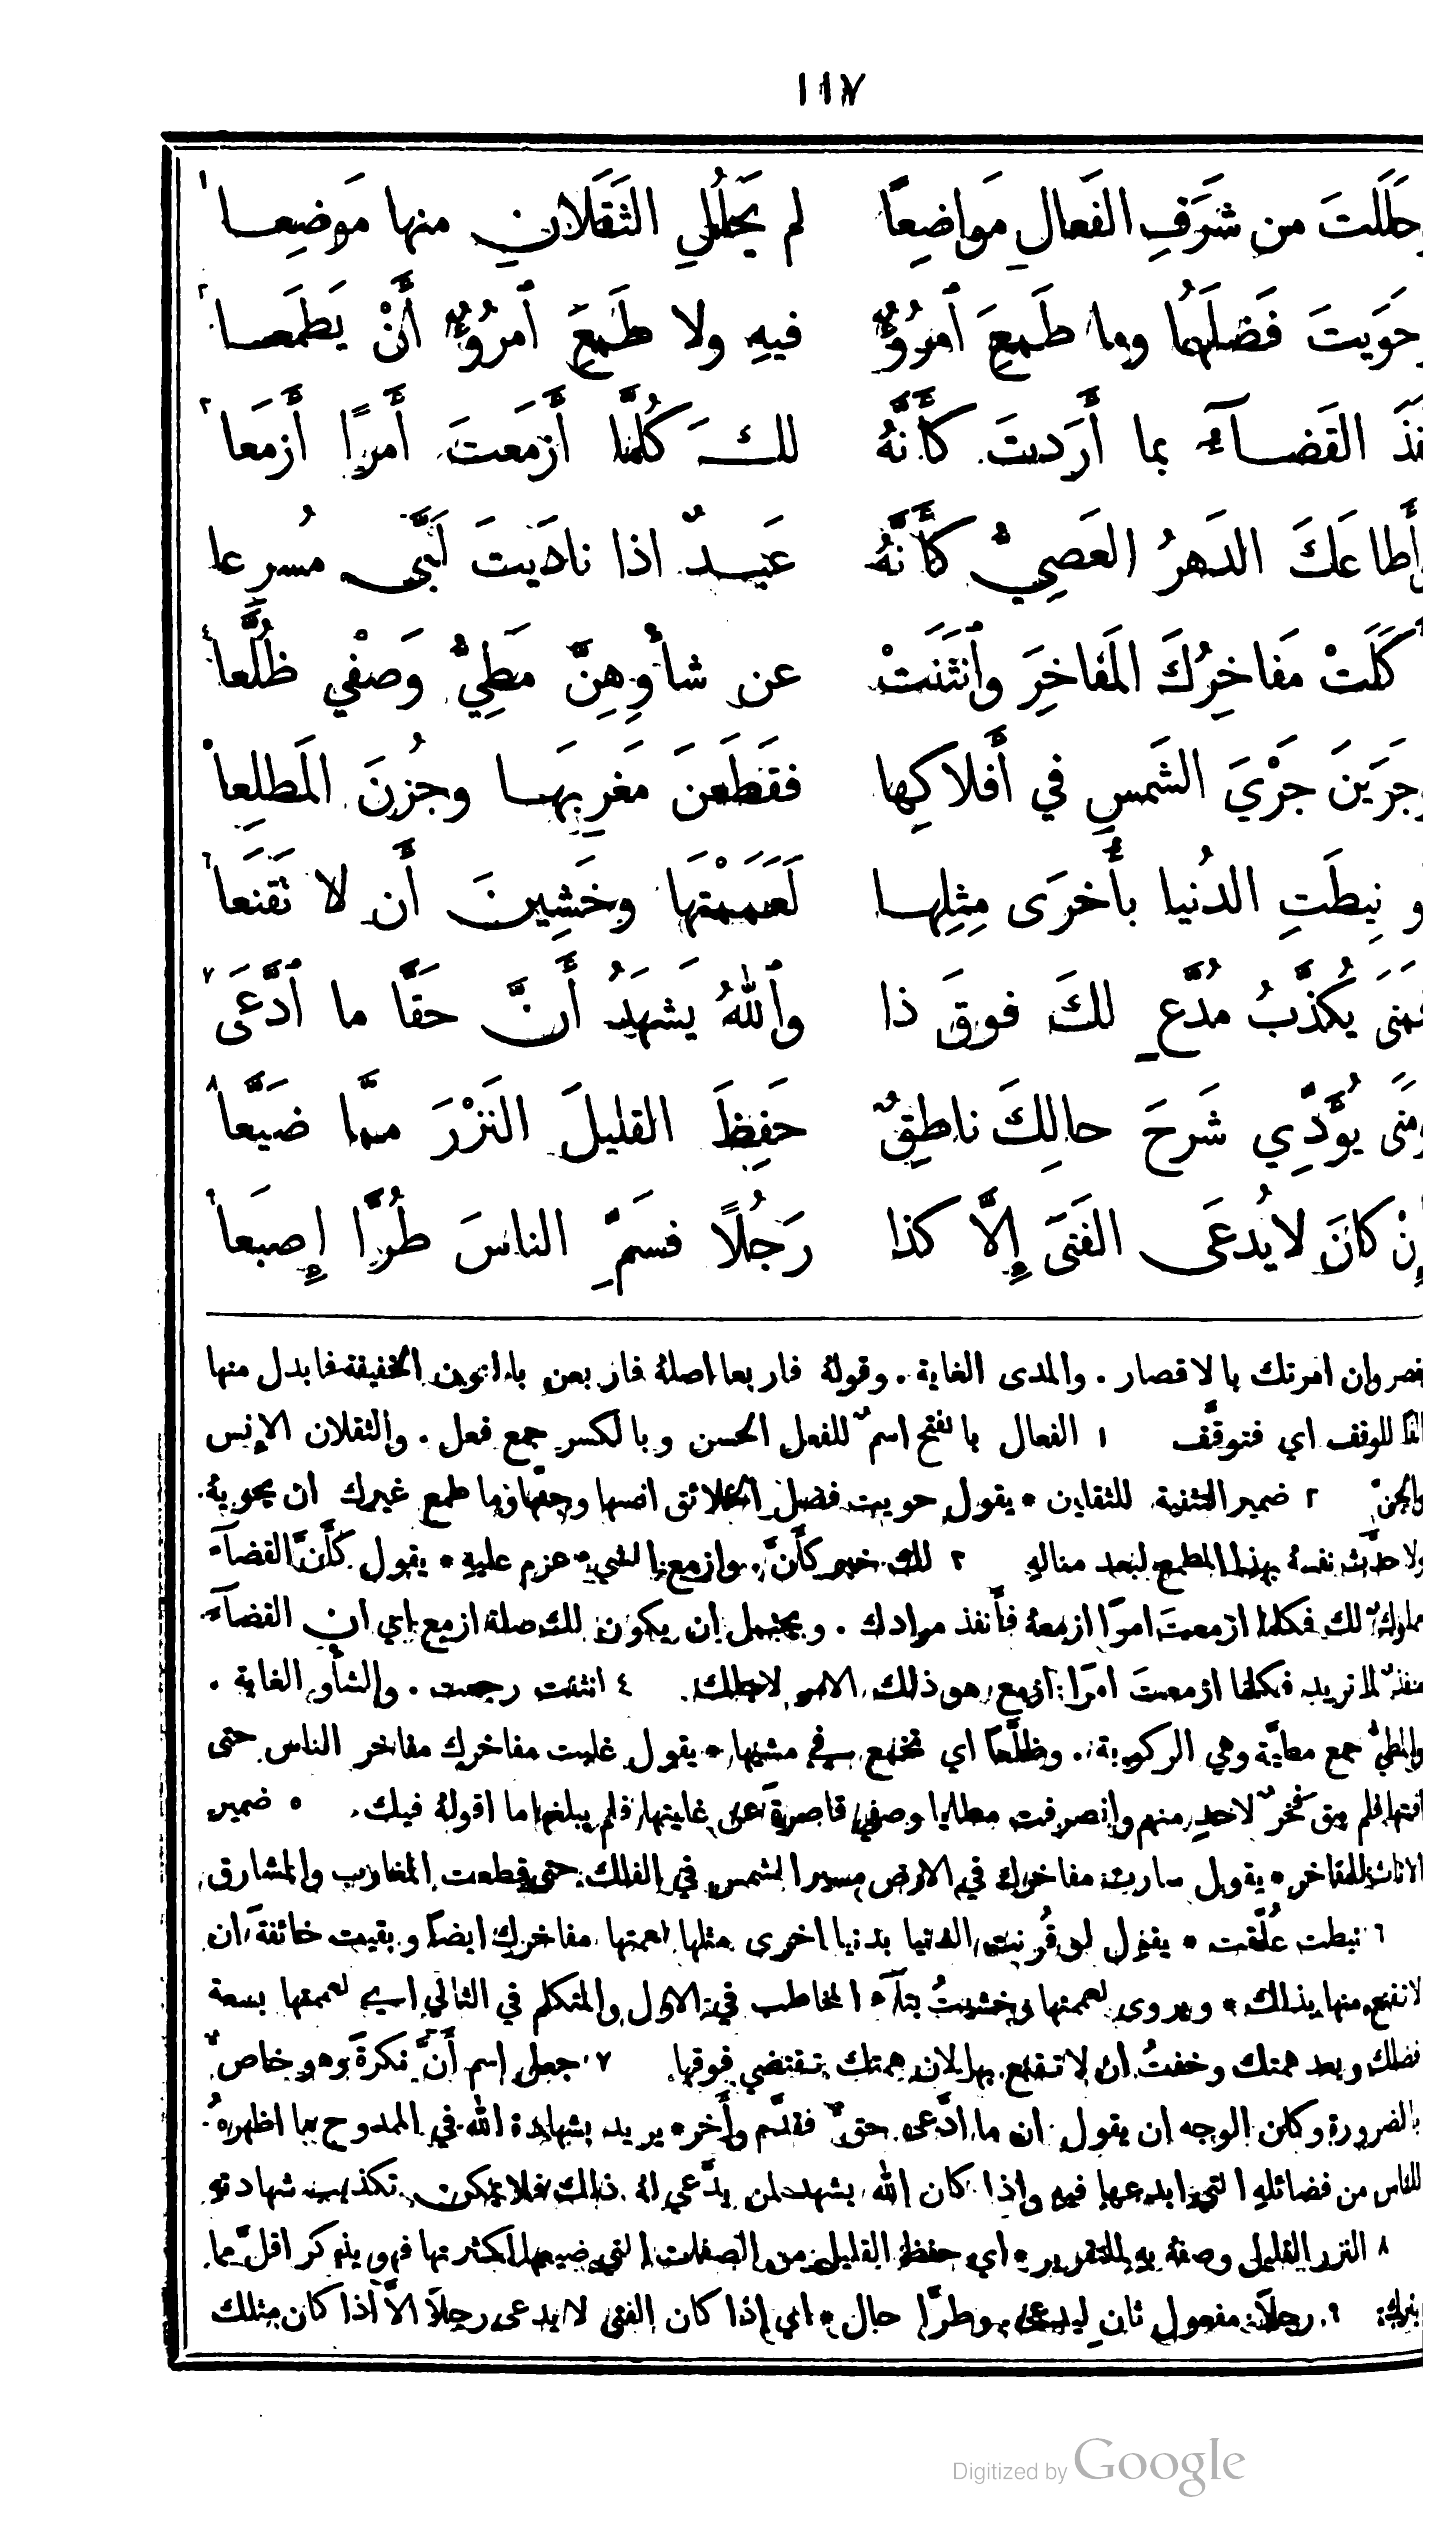 ١١٧
وحَلَلتَ من شَرَفِ الفَعالِ مَواضِعًا لم يَحلُلِ الثَقَلانِ منها مَوضِعا ١
وحَوَيتَ فَضلَهُما وما طَمِعَ ٱمرُؤٌ فيهِ ولا طَمِعَ ٱمرُؤٌ أَنْ يَطمَعا ٢
نَفَذَ القَضآءُ بما أَرَدتَ كأَنَّهُ لكَ كُلَّما أَزمَعتَ أَمرًا أَزمَعا ٣
وأَطاعَكَ الدَهرُ العَصِيُّ كأَنَّهُ عَبدٌ اذا نادَيتَ لَبَّى مُسرِعا
أَكَلَتْ مَفاخِرُكَ المَفاخِرَ وٱنثَنَتْ عن شأْوِهِنَّ مَطِيُّ وَصْفي ظُلَّعا ٤
وجَرَينَ جَرْيَ الشَمسِ في أَفلاكِها فقَطَعنَ مَغرِبَها وجُزنَ المَطلِعا ٥
لو نِيطَتِ الدُنيا بأُخرَى مِثلِها لَعَمَمْنَها وخَشِينَ أَن لا تَقنَعا ٦
فمَتَى يُكذَّبُ مُدَّعٍ لكَ فوقَ ذا وٱللهُ يَشهَدُ أَنَّ حَقًّا ما ٱدَّعَى ٧
ومَتَى يُؤَدِّي شَرحَ حالِكَ ناطِقٌ حَفِظَ القليلَ النَزْرَ ممَّا ضَيَّعا ٨
إِنْ كانَ لا يُدعَى الفَتَى إِلَّا كذا رَجُلًا فسَمِّ الناسَ طُرًّا إِصبَعا ٩
قصر وان امرتك بالاقصار . والمدى الغاية . وقولهُ فاربعا اصلهُ فاربعن بالنون الخفيفة فابدل منها
الفًا للوقف اي فتوقَّف ١ الفعال بالفتح اسمٌ للفعل الحسن وبالكسر جمع فعل . والثقلان الإنس
والجنّ ٢ ضمير التثنية للثقلين * يقول حويت فضل الخلائق انسها وجنّها وما طمع غيرك ان يحويهُ
ولا حدَّث نفسهُ بهذا المطمع لبعد منالهِ ٣ لك خبر كأَنَّ . وازمع بالشيء عزم عليهِ * يقول كأَنَّ القضآء
مملوكٌ لك فكلما ازمعتَ امرًا ازمعهُ فأَنفذ مرادك . ويحتمل ان يكون لك صلة ازمع اي ان القضآء
منفذٌ لما تريد فكلما ازمعتَ امرًا ازمع هو ذلك الامر لاجلك . ٤ انثنت رجعت . والشأو الغاية .
والمطيُّ جمع مطيَّة وهي الركوبة . وظلَّعًا اي تخمع في مشيها * يقول غلبت مفاخرك مفاخر الناس حتى
افنتها فلم يبق فخرٌ لاحدٍ منهم وانصرفت مطايا وصفي قاصرةً عن غايتها فلم يبلغها ما اقولهُ فيك . ٥ ضمير
الاناث للمفاخر * يقول سارت مفاخرك في الارض مسير الشمس في الفلك حتى قطعت المغارب والمشارق
٦ نيطت عُلّقت * يقول لو قُرنت الدنيا بدنيا اخرى مثلها لعمتها مفاخرك ايضًا وبقيت خائفةً ان
لا تقنع منها بذلك * ويروى لعممتها وخشيتُ بتآء المخاطب في الاول والمتكلم في الثاني اي لعممتها بسعة
فضلك وبعد همتك وخفتُ ان لا تقنع بها لان همتك تقتضي فوقها ٧ جعل اسم أَنَّ نكرةً وهو خاصٌّ
بالضرورة وكان الوجه ان يقول ان ما ادَّعى حقٌّ فقدَّم وأَخر * يريد بشهادة الله في الممدوح ما اظهرهُ
للناس من فضائلهِ التي ابدعها فيهِ واذا كان الله يشهد لمن يدَّعي لهُ ذلك فلا يمكن تكذيب شهادتهِ
٨ النزر القليل وصفهُ بهِ للتقرير * اي حفظ القليل من الصفات التي ضيعها لكثرتها فهو يذكر اقلَّ مما
يترك ٩ رجلًا مفعول ثانٍ ليدعى وطرًّا حال * اي اذا كان الفتى لا يدعى رجلًا الَّا اذا كان مثلك
Digitized by Google